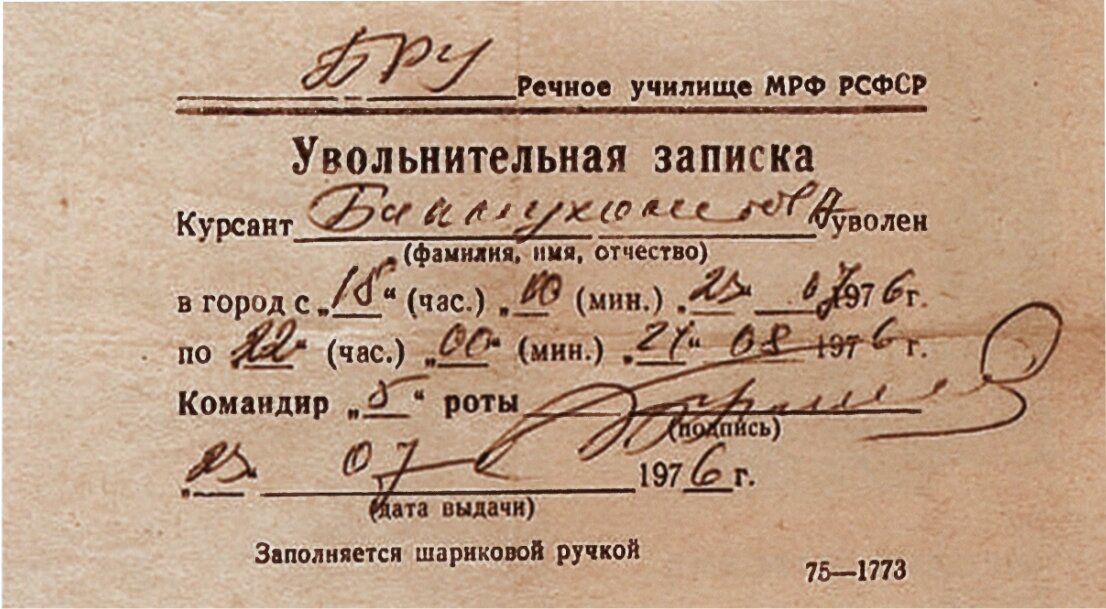 БРУ Речное училище МРФ РСФСР
Увольнительная записка
Курсант Баймухаметов А уволен
(фамилия, имя, отчество)
в город с „15“ (час.) „00 (мин.) „23 07 1976 г.
по „22“ (час.) „00“ (мин.) „21“ 08 1976 г.
Командир „5“ роты
(подпись)
„23 07 1976 г.
(дата выдачи)
Заполняется шариковой ручкой
75—1773